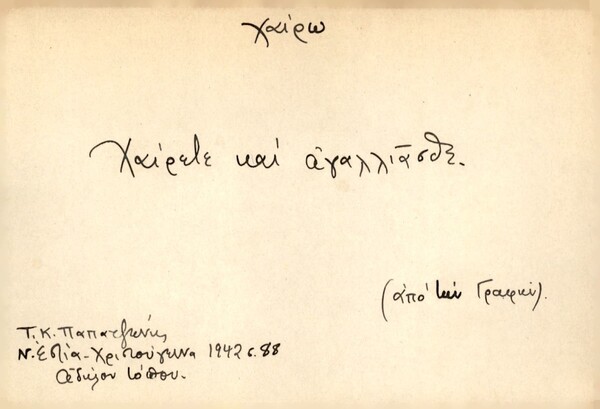 χαίρω
Χαίρετε καί ἀγαλλιᾶσθε.
(ἀπό τήν Γραφήν).
Τ. Κ. Παπατζώνης
Ν. Ἑστία - Χριστούγεννα 1942 σ. 88
ἀδήλου τόπου.